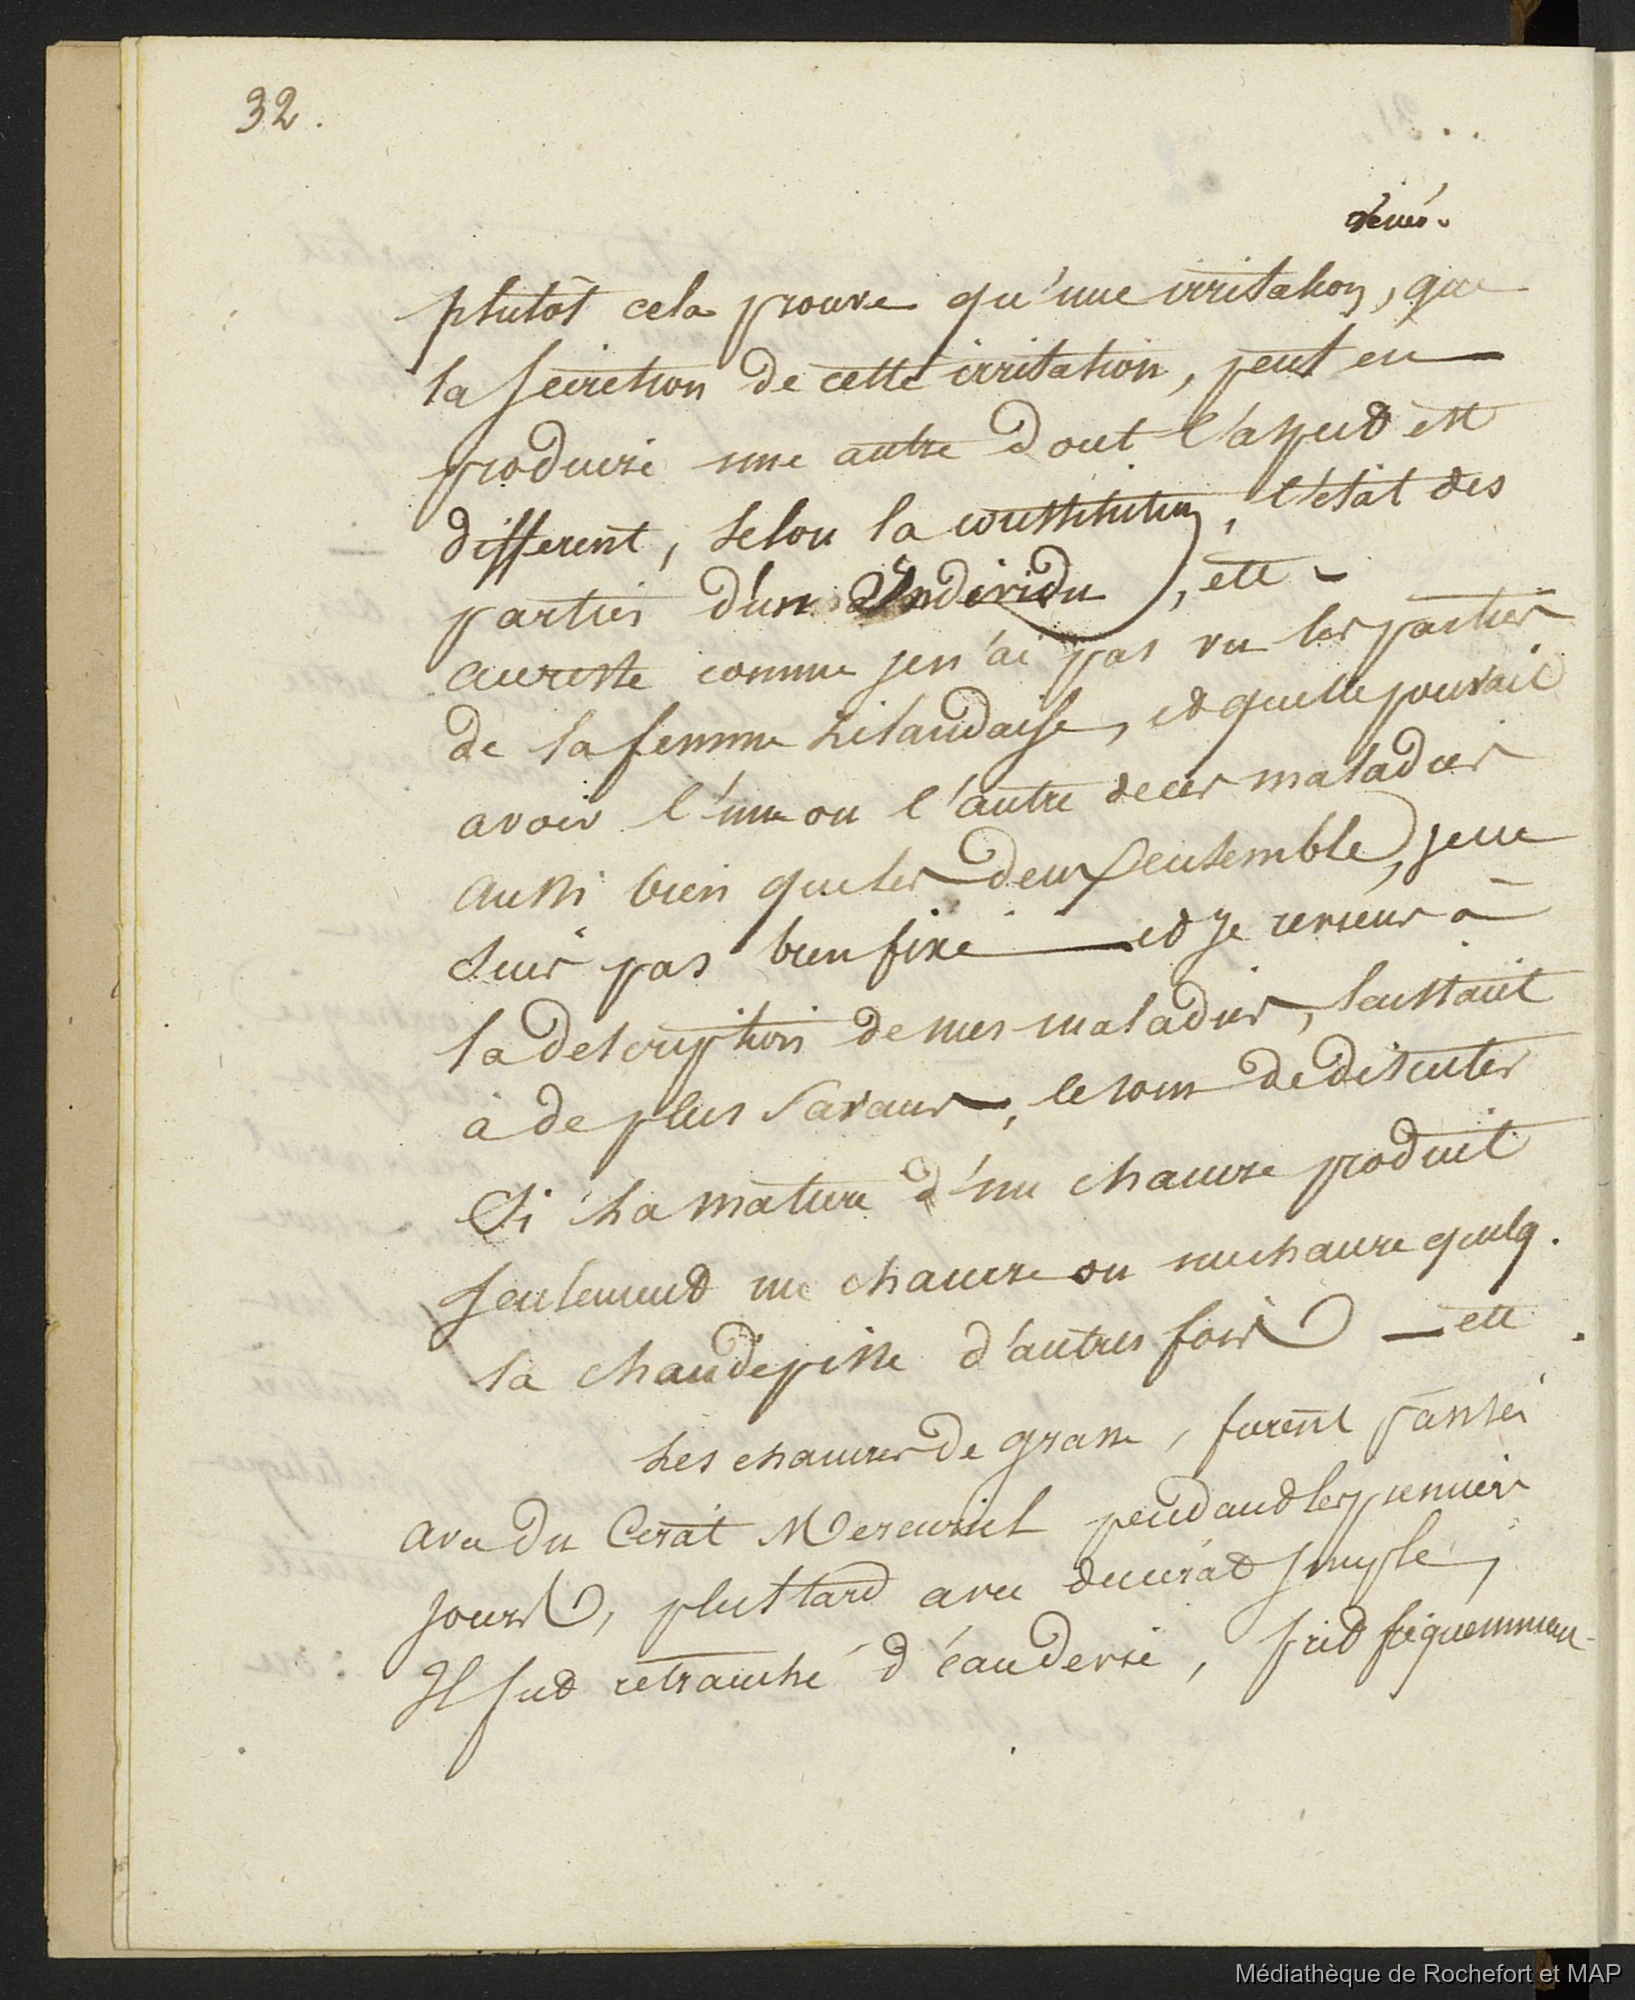 32.
plutôt cela prouve qu'une irritation, que
la secretion de cette irritation, peut en
produire une autre dont l'aspect est
different, selon la constitution, l'état des
parties d'un Individu, ett
aureste comme jen'ai pas vu les parties
de la femme Zélandaise, et quelle pouvait
avoir l'une ou l'autre deces maladies
aussi bien queles deux ensemble, jene
suis pas bien fixé — et Je reviens à
la description de mes maladies, laissant
à de plus Savans, le soin de discuter
Si la matiere d'un chancre produit
seulement un chancre ou unchancre quelq.
la chaudepisse d'autres fois — ett.
Les chancres de grasse, furent pansés
avec du Cerat Mercuriel pendant les premiers
jours, plustard avec ducérat simple,
Il fut retranché d'eaudevie, prit fréquemmen-
Médiathèque de Rochefort et MAP